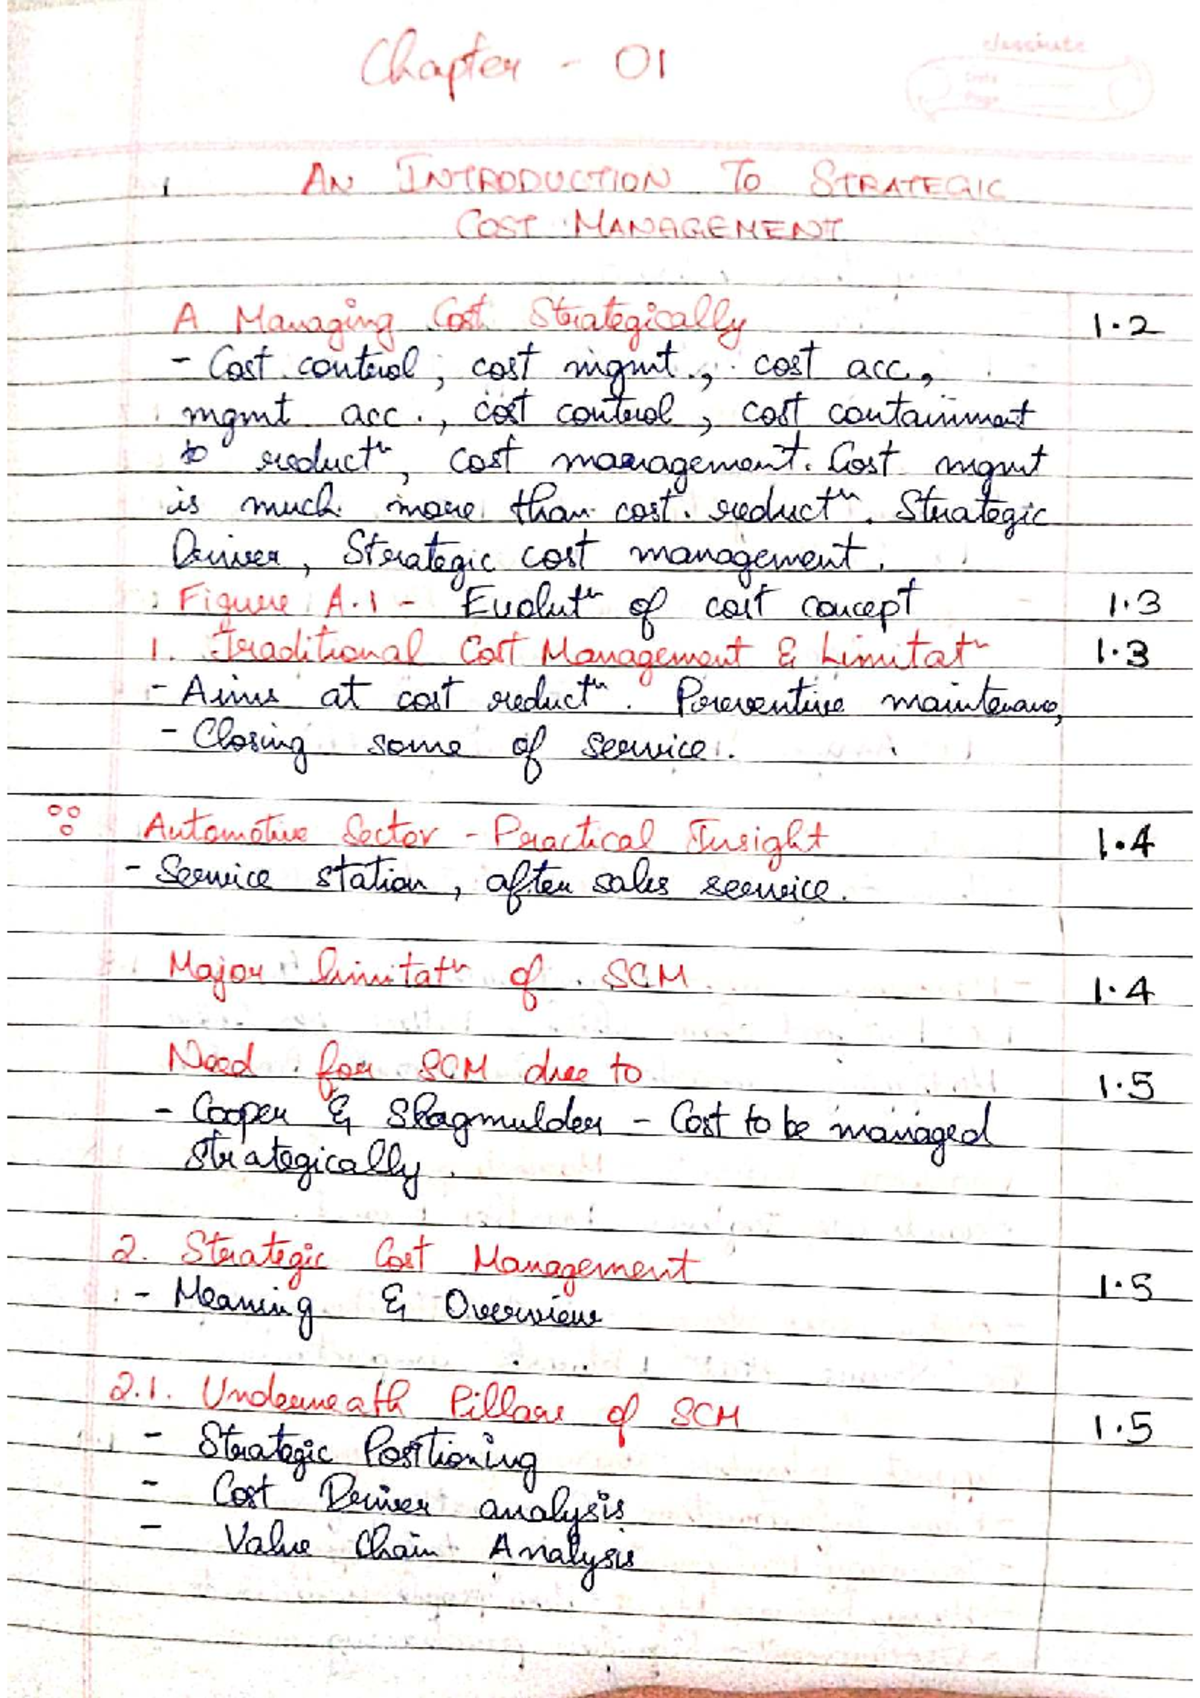 classmate
Date
Page
Chapter - 01
1 AN INTRODUCTION TO STRATEGIC
COST MANAGEMENT
A Managing Cost Strategically 1.2
- Cost control, cost mgmt., cost acc.,
mgmt acc., cost control, cost containment
to reductⁿ, cost management. Cost mgmt
is much more than cost reductⁿ. Strategic
Driver, Strategic cost management.
Figure A.1 - Evolutⁿ of cost concept 1.3
1. Traditional Cost Management & Limitatⁿ 1.3
- Aims at cost reductⁿ. Preventive maintenance,
- Closing some of service.
Automotive Sector - Practical Insight 1.4
- Service station, after sales service.
Major limitatⁿ of SCM 1.4
Need for SCM due to 1.5
- Cooper & Slagmulder - Cost to be managed
strategically.
2. Strategic Cost Management 1.5
- Meaning & Overview
2.1. Underneath Pillars of SCM 1.5
- Strategic Positioning
- Cost Driver analysis
- Value Chain Analysis